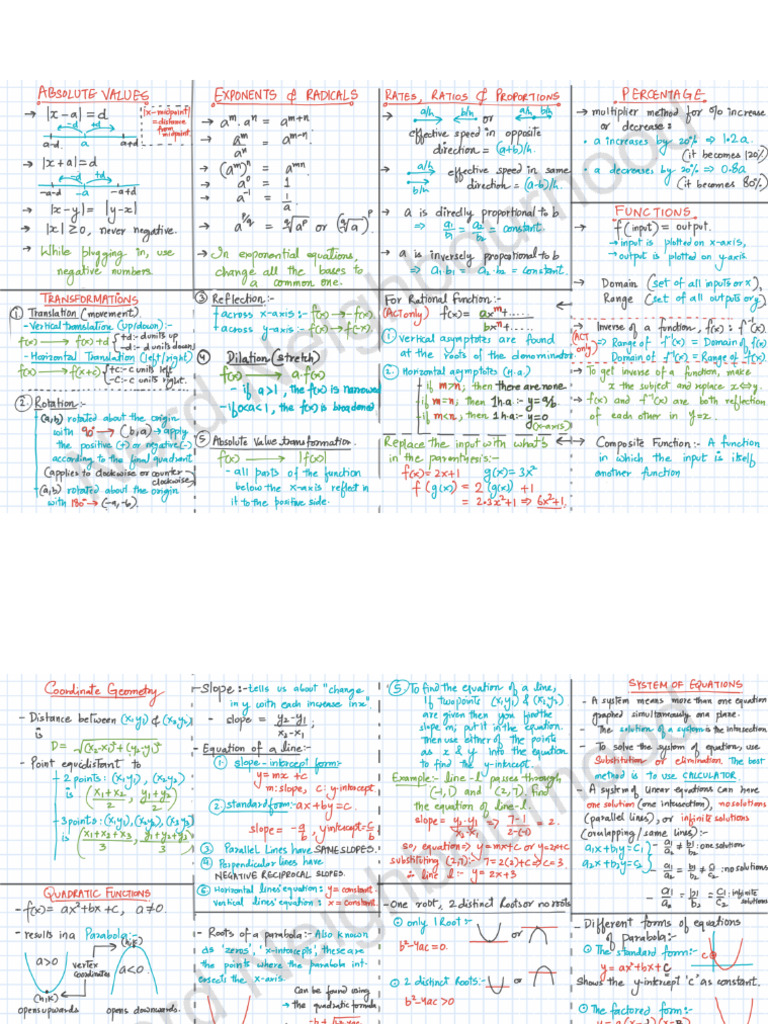 ABSOLUTE VALUES
→ |x-a|=d
|x-midpoint|
= distance
from
midpoint
-d +d
a-d a a+d
→ |x+a|=d
-d +d
-a-d -a -a+d
→ |x-y| = |y-x|
→ |x| ≥0, never negative.
→ While plugging in, use
negative numbers.
EXPONENTS & RADICALS
→ aᵐ. aⁿ = aᵐ⁺ⁿ
→ aᵐ/aⁿ = aᵐ⁻ⁿ
→ (aᵐ)ⁿ = aᵐⁿ
→ a⁰ = 1
→ a⁻¹ = 1/a
→ a^p/q = ^q√a^p or (^q√a)^p
→ In exponential equations,
change all the bases to
a common one.
RATES, RATIOS & PROPORTIONS
a/h b/h or a/h b/h
effective speed in opposite
direction = (a+b)/h.
→ a/h effective speed in same
b/h direction = (a-b)/h.
→ a is directly proportional to b
⇒ a₁/b₁ = a₂/b₂ = constant.
→ a is inversely proportional to b
⇒ a₁·b₁ = a₂·b₂ = constant.
PERCENTAGE
→ multiplier method for % increase
or decrease:
• a increases by 20% ⇒ 1.2a.
(it becomes 120%)
• a decreases by 20% ⇒ 0.8a
(it becomes 80%)
FUNCTIONS
→ f(input) = output.
→ input is plotted on x-axis,
→ output is plotted on y-axis
→ Domain (set of all inputs or x),
Range (set of all outputs or y)
→ Inverse of a function, f(x): f⁻¹(x).
(ACT only) ⇒ Range of f⁻¹(x) = Domain of f(x)
Domain of f⁻¹(x) = Range of f(x).
→ To get inverse of a function, make
x the subject and replace x↔y.
→ f(x) and f⁻¹(x) are both reflection
of each other in y=x.
→ Composite Function:- A function
in which the input is itself
another function.
TRANSFORMATIONS
① Translation (movement)
- Vertical translation (up/down):-
f(x) → f(x)+d {+d:- d units up
-d:- d units down
- Horizontal Translation (left/right)
f(x) → f(x+c) {+c:- c units left
-c:- c units right.
② Rotation:-
- (a,b) rotated about the origin
with 90° → (b,a) → apply
the positive (+) or negative(-)
according to the final quadrant
(applies to clockwise or counter
clockwise)
- (a,b) rotated about the origin
with 180° → (-a,-b).
③ Reflection:-
across x-axis:- f(x) → -f(x)
across y-axis:- f(x) → f(-x)
④ Dilation (stretch)
f(x) → a·f(x)
- if a>1, the f(x) is narrowed
- if 0<a<1, the f(x) is broadened
⑤ Absolute Value transformation.
f(x) → |f(x)|
- all parts of the function
below the x-axis reflect in
it to the positive side.
For Rational Function:-
(ACT only) f(x) = axᵐ+....
bxⁿ+.....
① vertical asymptotes are found
at the roots of the denominator.
② Horizontal asymptotes (H.a)
if m>n; then there are none
if m=n; then 1h.a:- y=a/b
if m<n; then 1h.a:- y=0
(x-axis)
Replace the input with what's
in the parenthesis:-
f(x)=2x+1 g(x)=3x²
f(g(x)) = 2(g(x)) +1
= 2·3x²+1 ⇒ 6x²+1.
Coordinate Geometry
- Distance between (x₁,y₁) & (x₂,y₂)
is
D= √(x₂-x₁)²+(y₂-y₁)²
- Point equidistant to
- 2 points: (x₁,y₁), (x₂,y₂)
is (x₁+x₂/2, y₁+y₂/2)
- 3 points: (x₁,y₁), (x₂,y₂), (x₃,y₃)
is (x₁+x₂+x₃/3, y₁+y₂+y₃/3)
- Slope:- tells us about "change
in y with each increase in x".
- slope = y₂-y₁/x₂-x₁ ;
- Equation of a line:-
① slope-intercept form:-
y=mx+c
m: slope, c: y-intercept
② standard form:- ax+by=c.
slope = -a/b, y intercept = c/b
③ Parallel Lines have SAME SLOPES.
④ Perpendicular lines have
NEGATIVE RECIPROCAL SLOPES.
⑥ Horizontal lines' equation: y = constant.
vertical lines' equation: x = constant.
⑤ To find the equation of a line,
If two points (x₁,y₁) & (x₂,y₂)
are given then you find the
slope m; put it in the equation.
Then use either of the points
as x & y into the equation
to find the y-intercept.
Example:- line-l passes through
(-1,1) and (2,7). Find
the equation of line-l.
slope = y₂-y₁/x₂-x₁ ⇒ 7-1/2-(-1) = 2.
so, equation ⇒ y=mx+c or y=2x+c
substituting (2,7):- 7=2(2)+c ⇒ c=3
∴ line l:- y=2x+3
SYSTEM OF EQUATIONS
- A system means more than one equation
graphed simultaneously one plane.
- The solution of a system is the intersection
- To solve the system of equation, use
Substitution or elimination. The best
method is to use CALCULATOR.
- A system of linear equations can have
one solution (one intersection), no solutions
(parallel lines), or infinite solutions
(overlapping / same lines):-
a₁x+b₁y=c₁
a₂x+b₂y=c₂
- a₁/a₂ ≠ b₁/b₂ : one solution
- a₁/a₂ = b₁/b₂ ≠ c₁/c₂ : no solutions
- a₁/a₂ = b₁/b₂ = c₁/c₂ : infinite
solutions
QUADRATIC FUNCTIONS
- f(x) = ax²+bx+c, a≠0.
- results in a Parabola:-
(h,k)
a>0 vertex coordinates a<0
(h,k)
opens upwards opens downwards.
- Roots of a parabola:- Also known
as 'zeros', 'x-intercepts', these are
the points where the parabola int-
ersects the x-axis.
Can be found using
→ the quadratic formula
- One root, 2 distinct Roots or no roots
① only 1 Root:- or
b²-4ac=0.
② 2 distinct Roots:- or
b²-4ac>0
- Different forms of equations
of parabola:-
① The standard form:-
y = ax²+bx+c
c
Shows the y-intercept 'c' as constant.
② The factored form:-
Nerd Neighbourhood
Nerd Neighbourhood